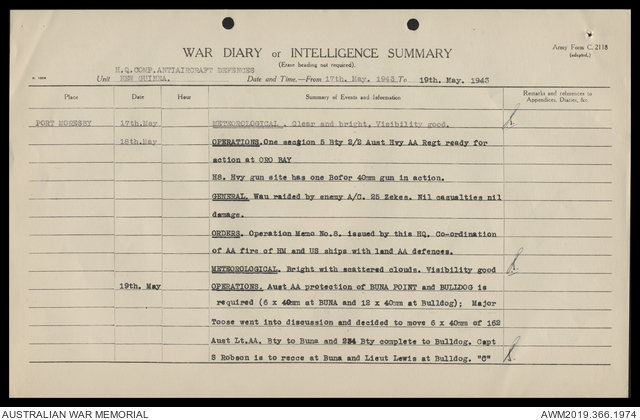 Army Form C. 2118
(adapted.)
WAR DIARY or INTELLIGENCE SUMMARY
(Erase heading not required).
H.Q.COMP.ANTIAIRCRAFT DEFENCES
Unit NEW GUINEA. Date and Time.—From 17th. May. 1943 To 19th. May. 1943
Place Date Hour Summary of Events and Information Remarks and references to
Appendices, Diaries, &c.
PORT MORESBY 17th.May METEOROLOGICAL. Clear and bright. Visibility good.
18th.May OPERATIONS.One section 5 Bty 2/2 Aust Hvy AA Regt ready for
action at ORO BAY
H8. Hvy gun site has one Bofor 40mm gun in action.
GENERAL. Wau raided by enemy A/C. 25 Zekes. Nil casualties nil
damage.
ORDERS. Operation Memo No.8. issued by this HQ. Co-ordination
of AA fire of HM and US ships with land AA defences.
METEOROLOGICAL. Bright with scattered clouds. Visibility good
19th. May OPERATIONS. Aust AA protection of BUNA POINT and BULLDOG is
required (6 x 40mm at BUNA and 12 x 40mm at Bulldog); Major
Toose went into discussion and decided to move 6 x 40mm of 162
Aust Lt.AA. Bty to Buna and 234 Bty complete to Bulldog. Capt
S Robson is to recce at Buna and Lieut Lewis at Bulldog. "C"
AUSTRALIAN WAR MEMORIAL
AWM2019.366.1974